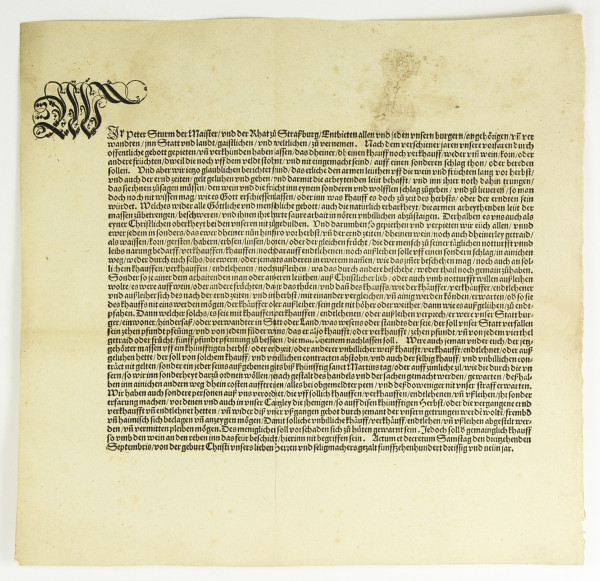 WIr Peter Sturm der Maister/ vnd der Rhat zů Straßburg/ Entbietten allen vnd jeden vnsern burgern/ angehörigen/ vñ ver
wandten/ jnn Statt vnd landt/ gaistlichen/ vnd weltlichen/ zů vernemen. Nach dem verschiener jaren vnsere vorfaren durch
offentliche gebott gepieten/ vñ verkhünden haben lassen/ das dheiner/ dhein khauff noch verkhauff/ weder vff wein/ korn/ oder
andere früchten/ dweil die noch vff dem veld stohn/ vnd nit eingemacht seind/ auff einen sonderen schlag thon/ oder bereden
sollen. Vnd aber wir jetzo glaublichen bericht seind/ das etliche den armen leuthen vff die wein vnd früchten lang vor herbst/
vnd auch der ernd zeiten/ gelt gelauhen vnd geben/ vnd darmit die arbeytenden leüt behafft/ vnd inn jhrer noth dahin trungen/
das sie ihnen zůsagen müssen/ den wein vnd die frücht inn eynem sonderen vnd wolfflen schlag zůgeben/ vnd zů lieueren/ so man
doch noch nit wissen mag/ wie es Gott erschiessen lassen/ oder inn was khauff es doch zů zeit des herbsts/ oder der erndten sein
würdt. Welches wider alle Göttliche vnd menschliche gebott/ auch die natürlich erbarkheyt/ die armen arbeythenden leüt der
massen zů betrengen/ beschweren/ vnd jhnen jhr harte saure arbeit in nöten vnbillichen abzůstaigen. Derhalben es vns auch als
eyner Christlichen oberkeyt bei den vnseren nit zůgedulden. Vnd darumb so gepiethen vnd verpieten wir euch allen/ vnnd
ewer jedem in sonders/ das ewer dheiner nůn hinfüro vor herbst/ vñ der ernd zeiten/ dheinen wein/ noch auch dheinerley getraid/
als waissen/ korn/ gersten/ habern/ erbsen/ linsen/ bonen/ oder der gleichen frücht/ die der mensch zů seiner täglichen notturfft vnnd
leibs narung bedarff/ verkhauffen/ khauffen/ noch darauff endtlehenen/ noch außleihen solle vff einen sonderen schlag/ in ainichen
weg/ weder durch sich selbs/ die ewern/ oder jemants anderen in ewerem namen/ wie das jmer beschehen mag/ noch auch an sol-
lichem khauffen/ verkhauffen/ endtlehenen/ noch außleihen/ wa das durch andere beschehe/ weder theil noch gemain zů haben.
Sonder so ja einer dem arbaitenden man oder anderen leüthen/ auß Christlicher lieb/ oder auch vmb notturfft willen außleihen
wolte/ es were auff wein/ oder andere früchten/ da jr das thüen/ vnd dañ des khauffs/ wie der khäuffer/ verkhäuffer/ endtlehener
vnd außleiher sich des nach der ernd zeiten/ vnd in herbst/ mit einander vergleichen/ vñ ainig werden könden/ erwarten/ ob so sie
des khauffs nit eins werden mögen/ der khäuffer oder außleiher/ sein gelt nit des oder weniher/ dann wie es außgeliehen/ zů endt-
pfahen. Dann welcher solchs/ es seie mit khauffen verkhauffen/ endtlehenen/ oder außleihen verprech/ er were vnser Statt bur-
ger/ einwoner/ hindersäß/ oder verwandter in Statt oder Land/ was wesens oder standts der seie/ der soll vnser Statt verfallen
sein zehen pfundt pfening/ vnd von jedem füder wins/ das er also khaufft/ oder verkhaufft/ zehen pfundt/ vñ von jedem viertheil
getraids oder frücht/ fünff pfundt pfenning zů bessen/ die man dheinem nachlassen soll. Were auch jeman vnder euch/ der jetz-
gehörter massen vff den khünfftigen herbst/ oder erndzeit/ oder anderer vnbillicher weiß khaufft/ verkhaufft/ endtlehnet/ oder auß
geluhen hette/ der soll von solchem khauff/ vnd vnbillichen contracten abstohn/ vnd auch der selbig khauff/ vnd vnbillichen cont-
ract nit gelten/ sonder ein jeder sein außgeben gelt biß khünfftig sanct Martins tag/ oder auff zimliche zil/ wie die durch die vn
sern/ so wir inn sonderheyt darzů ordnen wöllen/ je nach gestalt des handels vnd der sachen gemacht werden/ gewarten/ deß hal-
ben inn ainichen andern weg dhein costen aufftreiben/ alles bei obgemelter peen/ vnd deß do weniger nit vnser straff erwarten.
Wir haben auch sondere personen auß vns verordnet/ die vff sollich khauffen/ verkhauffen/ endtlehenen/ vñ vßleihen/ jhr sonder
erfarung machen/ vor denen vnd auch in vnser Cantzley die jhenigen/ so auff disen khünfftigen Herbst/ oder die vergangene ernd
verkhaufft vñ endtlehnet hetten/ vñ weder diß vnser vßgangen gebot durch jemant der vnsern getrungen werdẽ wolte/ frembd
vñ haimisch sich beclagen vñ anzeygen mögen. Damit solliche vnbilliche khäuff/ verkhäuff/ endtlehen/ vñ vßleihen abgestelt wer-
den/ vñ vermitten pleiben mögen. Des meniglicher soll vor schaden sich zů hüten gewarnt sein. Jedoch soll der gemainglich khauff
so vmb den wein an den reben inn das seit beschicht/ hierinn nit begriffen sein. Actum et decretum Samstag den dreitzehenden
Septembris/ von der geburt Christi vnsers lieben Herren vnd seligmachers gezalt fünffzehenhundert dreissig vnd neün jar.